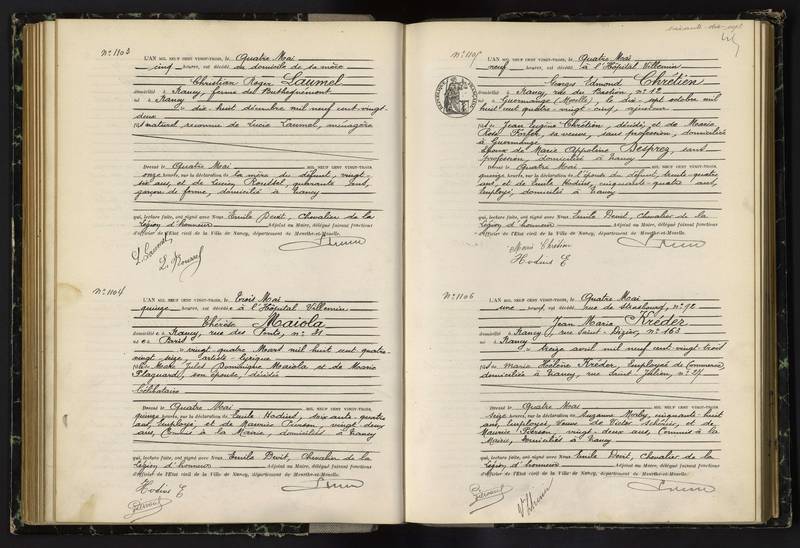 N° 1103
L'AN MIL NEUF CENT VINGT-TROIS, le Quatre Mai
cinq heures, est décédé au domicile de sa mère
Christian Roger Laumel
domicilié à Nancy, ferme del
né à Nancy
dix huit décembre mil neuf cent vingt-
deux
fils naturel reconnu de Lucie Laumel, ménagère
Dressé le Quatre Mai MIL NEUF CENT VINGT-TROIS,
onze heures, sur la déclaration de la mère du défunt, vingt-
six ans, et de Lucien Roussel, quarante ans,
garçon de ferme, domiciliés à Nancy
qui, lecture faite, ont signé avec Nous, Emile Devit, Chevalier de la
Légion d'honneur Adjoint au Maire, délégué faisant fonctions
d'officier de l'État civil de la Ville de Nancy, département de Meurthe-et-Moselle.
L. Laumel
L. Roussel
N° 1104
L'AN MIL NEUF CENT VINGT-TROIS, le Trois Mai
quinze heures, est décédée à l'Hôpital Villemin
Thérèse Maiola
domiciliée à Nancy, rue des Ponts, n° 31
née à Paris
vingt quatre Mars mil huit cent quatre-
vingt-seize, artiste-lyrique
fille de Jules Dominique Maiola et de Marie
son épouse, décédée
Célibataire
Dressé le Quatre Mai MIL NEUF CENT VINGT-TROIS,
quinze heures, sur la déclaration de Emile Hodius, cinquante-quatre
ans, employé, et de Maurice Pierson, vingt deux
ans, Commis à la Mairie, domiciliés à Nancy
qui, lecture faite, ont signé avec Nous, Emile Devit, Chevalier de la
Légion d'honneur Adjoint au Maire, délégué faisant fonctions
d'officier de l'État civil de la Ville de Nancy, département de Meurthe-et-Moselle.
Hodius E
N° 1105
L'AN MIL NEUF CENT VINGT-TROIS, le Quatre Mai
neuf heures, est décédé à l'Hôpital Villemin
Georges Edmond Chrétien
domicilié à Nancy, rue du Bastion, n° 12
né à Guermange (Moselle), le dix-sept octobre mil
huit cent quatre-vingt-cinq,
fils de Jean Eugène Chrétien, décédé, et de Marie
Rose sa veuve, sans profession, domiciliée
à Guermange
Époux de Marie Appoline Desprez, sans
profession, domiciliée à Nancy
Dressé le Quatre Mai MIL NEUF CENT VINGT-TROIS,
quinze heures, sur la déclaration de l'épouse du défunt, trente-quatre
ans, et de Emile Hodius, cinquante-quatre ans,
employé, domiciliés à Nancy
qui, lecture faite, ont signé avec Nous, Emile Devit, Chevalier de la
Légion d'honneur Adjoint au Maire, délégué faisant fonctions
d'officier de l'État civil de la Ville de Nancy, département de Meurthe-et-Moselle.
Marie Chrétien
Hodius E
N° 1106
L'AN MIL NEUF CENT VINGT-TROIS, le Quatre Mai
une heure, est décédé rue de Strasbourg, n° 92
Jean Marie Kréder
domicilié à Nancy, rue Saint-Dizier, n° 163
né à Nancy
treize avril mil neuf cent vingt trois
fils de Marie Hélène Kréder, Employée de Commerce,
domiciliée à Nancy, rue Saint Julien, n° 27
Dressé le Quatre Mai MIL NEUF CENT VINGT-TROIS,
seize heures, sur la déclaration de Suzanne cinquante-huit
ans, employée, Veuve de Victor et de
Maurice Pierson, vingt-deux ans, Commis à la
Mairie, domiciliés à Nancy
qui, lecture faite, ont signé avec Nous, Emile Devit, Chevalier de la
Légion d'honneur Adjoint au Maire, délégué faisant fonctions
d'officier de l'État civil de la Ville de Nancy, département de Meurthe-et-Moselle.